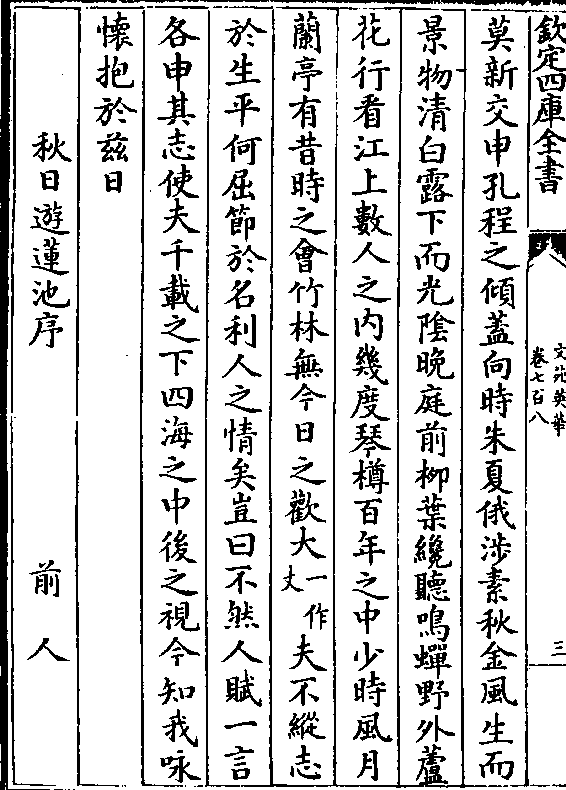 欽定四庫全書
文苑英華
卷七百八
三
莫新交申孔程之傾蓋向時朱夏俄涉素秋金風生而
景物清白露下而光陰晚庭前柳葉纔聽鳴蟬野外蘆
花行看江上數人之内幾度琴樽百年之中少時風月
蘭亭有昔時之會竹林無今日之歡大一作丈夫不縱志
於生平何屈節於名利人之情矣豈曰不然人賦一言
各申其志使夫千載之下四海之中後之視今知我咏
懐抱於兹日
秋日遊蓮池序 前人